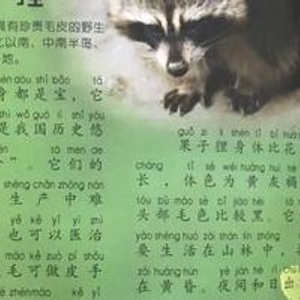 具有珍贵毛皮的野生
以南、中南半岛、
地。
shēn dōu shì bǎo tā
身都是宝，它
shì wǒ guó lì shǐ yōu
是我国历史悠
tā men de
”。它们的
shēng chǎn zhōng nán
生产中难
yě kě yǐ yī zhì
也可以医治
máo kě zuò pí
毛可做皮手
guǒ zi lí shēn tǐ bǐ huā
果子狸身体比花
cháng tǐ sè wéi huáng huī hè
长，体色为黄灰褐
tóu bù máo sè bǐ jiào hēi tā
头部毛色比较黑。它
yào shēng huó zài shān lín zhōng
要生活在山林中，
zài huáng hūn yè jiān hé rì chū
在黄昏、夜间和日
出